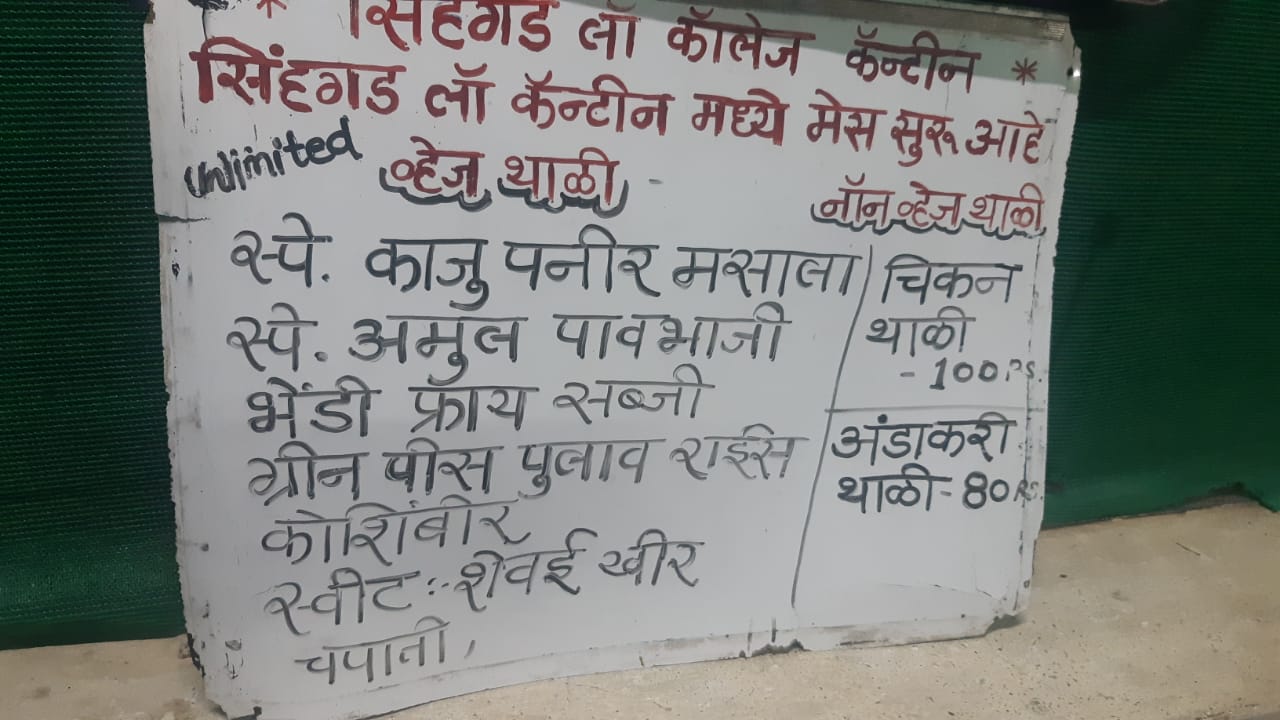 * सिंहगड लॉ कॉलेज कॅन्टीन *
सिंहगड लॉ कॅन्टीन मध्ये मेस सुरू आहे
unlimited व्हेज थाळी -
स्पे. काजु पनीर मसाला
स्पे. अमुल पावभाजी
भेंडी फ्राय सब्जी
ग्रीन पीस पुलाव राईस
कोशिंबीर
स्वीट :- शेवई खीर
चपाती,
नॉन व्हेज थाळी
चिकन
थाळी
- 100 Rs.
अंडाकरी
थाळी - 80 Rs.